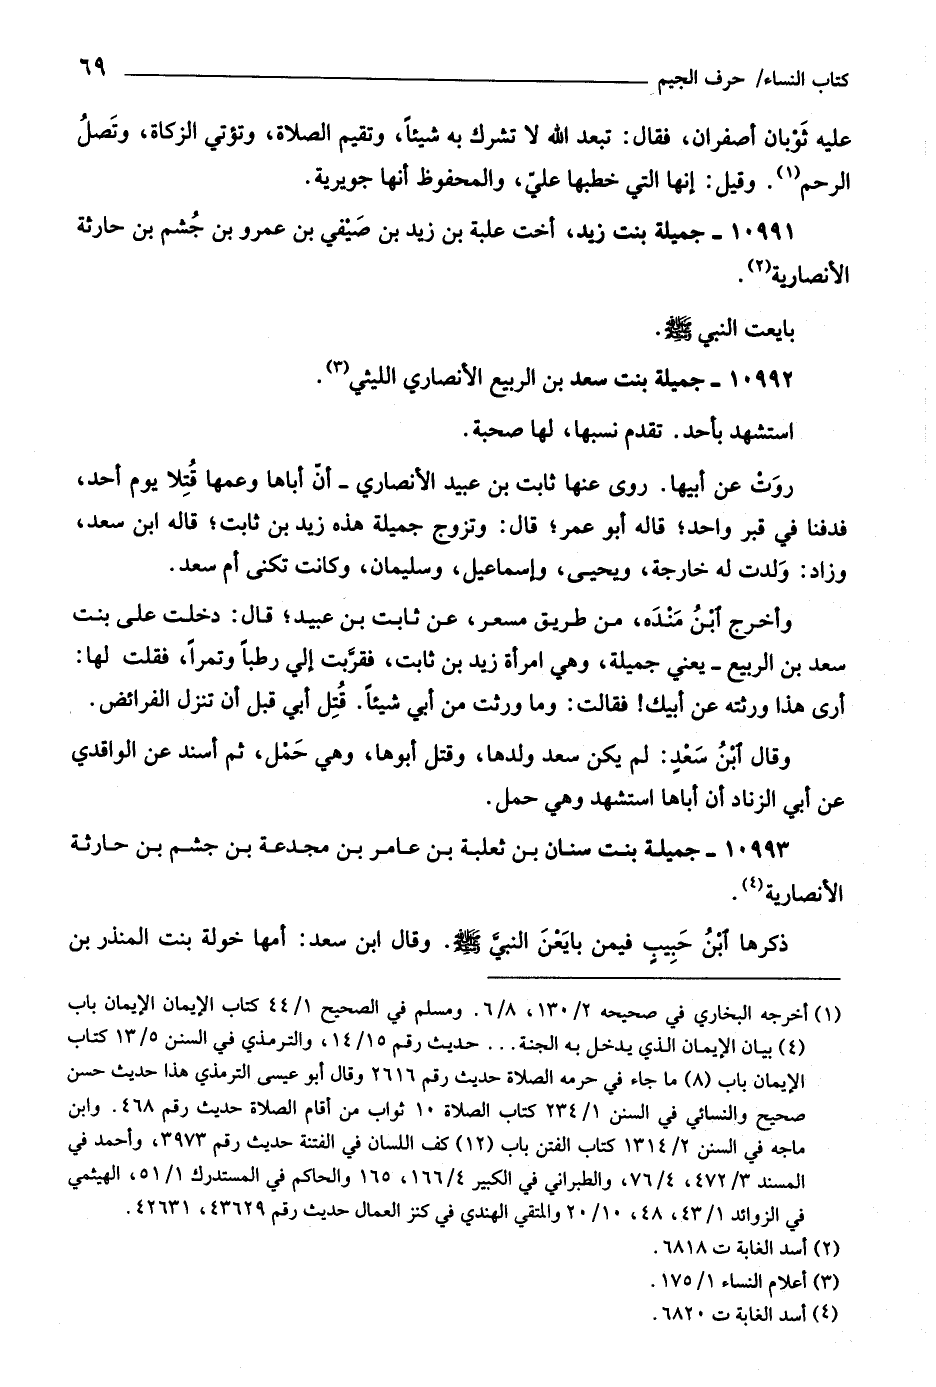 كتاب النساء/ حرف الجيم ٦٩
عليه ثَوْبان أصفران، فقال: تبعد الله لا تشرك به شيئاً، وتقيم الصلاة، وتؤتي الزكاة، وتَصلُ
الرحم(١). وقيل: إنها التي خطبها عليّ، والمحفوظ أنها جويرية.
١٠٩٩١ ـ جميلة بنت زيد، أخت علبة بن زيد بن صَيْفي بن عمرو بن جُشم بن حارثة
الأنصارية(٢).
بايعت النبي ﷺ.
١٠٩٩٢ ـ جميلة بنت سعد بن الربيع الأنصاري الليثي(٣).
استشهد بأحد. تقدم نسبها، لها صحبة.
روَتْ عن أبيها. روى عنها ثابت بن عبيد الأنصاري ـ أنّ أباها وعمها قُتِلا يوم أحد،
فدفنا في قبر واحد؛ قاله أبو عمر؛ قال: وتزوج جميلة هذه زيد بن ثابت؛ قاله ابن سعد،
وزاد: وَلدت له خارجة، ويحيى، وإسماعيل، وسليمان، وكانت تكنى أم سعد.
وأخرج ٱبْنُ مَنْدَه، من طريق مسعر، عن ثابت بن عبيد؛ قال: دخلت على بنت
سعد بن الربيع ـ يعني جميلة، وهي امرأة زيد بن ثابت، فقرَّبت إلي رطباً وتمراً، فقلت لها:
أرى هذا ورثته عن أبيك! فقالت: وما ورثت من أبي شيئاً. قُتِل أبي قبل أن تنزل الفرائض.
وقال ٱبْنُ سَعْدٍ: لم يكن سعد ولدها، وقتل أبوها، وهي حَمْل، ثم أسند عن الواقدي
عن أبي الزناد أن أباها استشهد وهي حمل.
١٠٩٩٣ ـ جميلة بنت سنان بن ثعلبة بن عامر بن مجدعة بن جشم بن حارثة
الأنصارية(٤).
ذكرها ٱبْنُ حَبِيبٍ فيمن بايَعْنَ النبيَّ ﷺ. وقال ابن سعد: أمها خولة بنت المنذر بن
(١) أخرجه البخاري في صحيحه ١٣٠/٢، ٦/٨. ومسلم في الصحيح ٤٤/١ كتاب الإيمان الإيمان باب
(٤) بيان الإيمان الذي يدخل به الجنة... حديث رقم ١٤/١٥، والترمذي في السنن ١٣/٥ كتاب
الإيمان باب (٨) ما جاء في حرمه الصلاة حديث رقم ٢٦١٦ وقال أبو عيسى الترمذي هذا حديث حسن
صحيح والنسائي في السنن ٢٣٤/١ كتاب الصلاة ١٠ ثواب من أقام الصلاة حديث رقم ٤٦٨. وابن
ماجه في السنن ١٣١٤/٢ كتاب الفتن باب (١٢) كف اللسان في الفتنة حديث رقم ٣٩٧٣، وأحمد في
المسند ٤٧٢/٣، ٧٦/٤، والطبراني في الكبير ١٦٦/٤، ١٦٥ والحاكم في المستدرك ٥١/١، الهيثمي
في الزوائد ٤٣/١، ٤٨، ٢٠/١٠ والمتقي الهندي في كنز العمال حديث رقم ٤٣٦٢٩، ٤٢٦٣١.
(٢) أسد الغابة ت ٦٨١٨.
(٣) أعلام النساء ١٧٥/١.
(٤) أسد الغابة ت ٦٨٢٠.